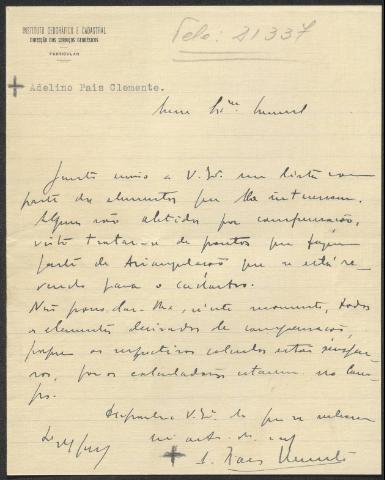 INSTITUTO GEOGRÁFICO E CADASTRAL
DIRECÇÃO DOS SERVIÇOS GEODÉSICOS
PARTICULAR
Tele: 21337
Adelino Pais Clemente.
Meu Ex.mo
Junto envio a V. Ex. uma lista com
parte dos elementos que lhe interessam.
Alguns são obtidos por compensação,
visto tratar-se de pontos que fazem
parte da triangulação que se está re-
vendo para o cadastro.
Não posso dar-lhe, neste momento, todos
os elementos derivados da compensação,
porque os respectivos calculos estão
pois os calculadores estarem no Cam-
po.
V. Ex. do que se
A. Pais Clemente